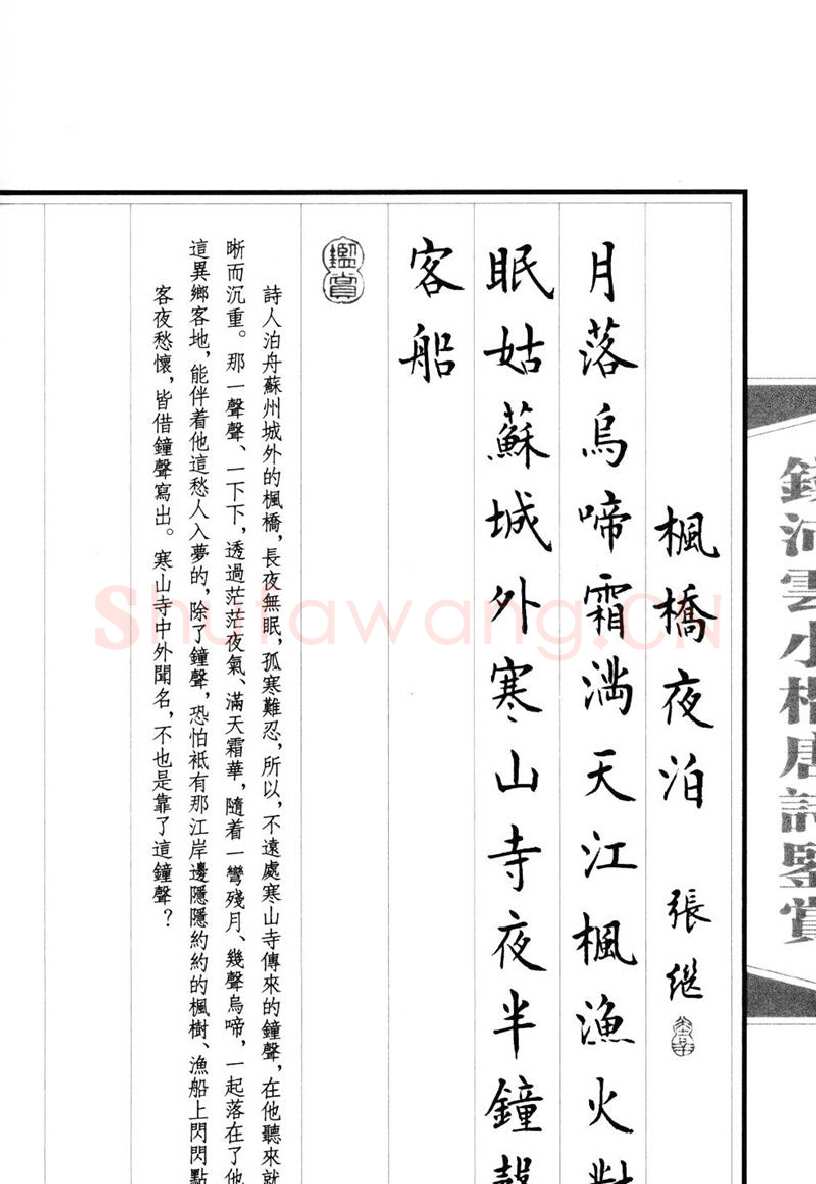 錢沛雲小楷唐詩鑒賞
楓橋夜泊 張繼
月落烏啼霜満天江楓漁火對
眠姑蘇城外寒山寺夜半鐘聲
客船
鑑賞
詩人泊舟蘇州城外的楓橋，長夜無眠，孤寒難忍，所以，不遠處寒山寺傳來的鐘聲，在他聽來就
晰而沉重。那一聲聲、一下下，透過茫茫夜氣、滿天霜華，隨着一彎殘月、幾聲烏啼，一起落在了他
這異鄉客地，能伴着他這愁人入夢的，除了鐘聲，恐怕祗有那江岸邊隱隱約約的楓樹、漁船上閃閃點
客夜愁懷，皆借鐘聲寫出。寒山寺中外聞名，不也是靠了這鐘聲？
Shufawang.CN